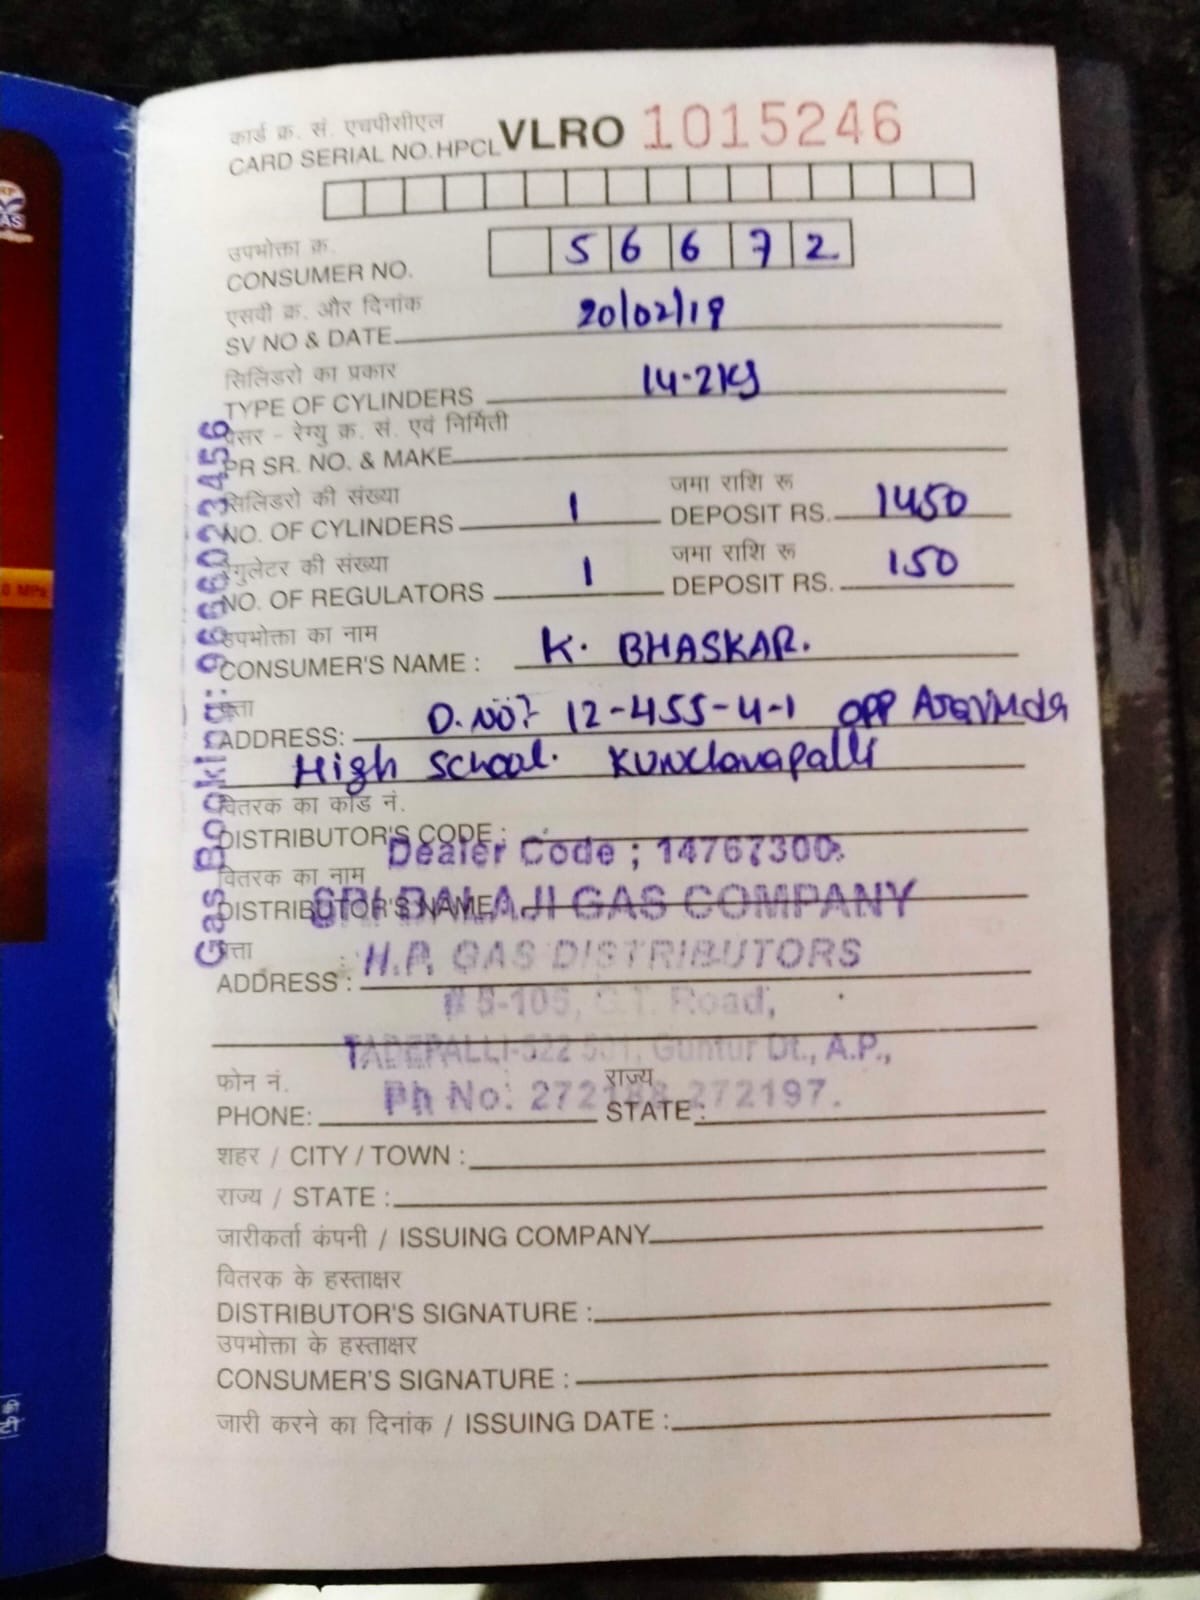 कार्ड क्र. सं. एचपीसीएल
CARD SERIAL NO.HPCL VLRO 1015246
उपभोक्ता क्र.
CONSUMER NO. 5 6 6 7 2
एसवी क्र. और दिनांक
SV NO & DATE 20/02/19
सिलिंडरो का प्रकार
TYPE OF CYLINDERS 14.2kg
प्रेसर - रेग्यु क्र. सं. एवं निर्मिती
PR SR. NO. & MAKE
सिलिंडरो की संख्या जमा राशि रू
NO. OF CYLINDERS 1 DEPOSIT RS. 1450
रेगुलेटर की संख्या जमा राशि रू
NO. OF REGULATORS 1 DEPOSIT RS. 150
उपभोक्ता का नाम
CONSUMER'S NAME : K. BHASKAR.
पता
ADDRESS: D.NO:- 12-455-4-1 OPP Aravinda
High School. Kunchanapalli
वितरक का कोड नं.
DISTRIBUTOR'S CODE :
Dealer Code ; 14767300
वितरक का नाम
DISTRIBUTOR'S NAME
SRI BALAJI GAS COMPANY
पत्ता
H.P. GAS DISTRIBUTORS
ADDRESS :
# 5-105, G.T. Road,
TADEPALLI-522 501, Guntur Dt., A.P.,
फोन नं. राज्य
Ph No: 272188 272197.
PHONE: STATE :
शहर / CITY / TOWN :
राज्य / STATE :
जारीकर्ता कंपनी / ISSUING COMPANY
वितरक के हस्ताक्षर
DISTRIBUTOR'S SIGNATURE :
उपभोक्ता के हस्ताक्षर
CONSUMER'S SIGNATURE :
जारी करने का दिनांक / ISSUING DATE :
Gas Booking: 9666023456